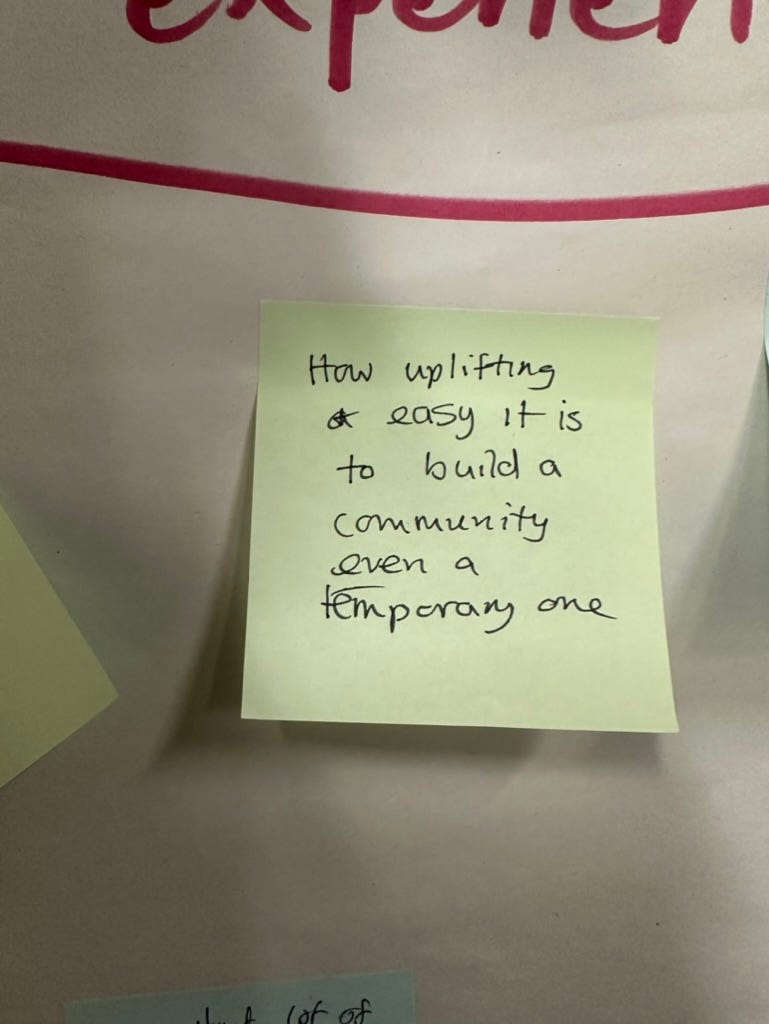 experien
How uplifting
& easy it is
to build a
community
even a
temporary one
lot of